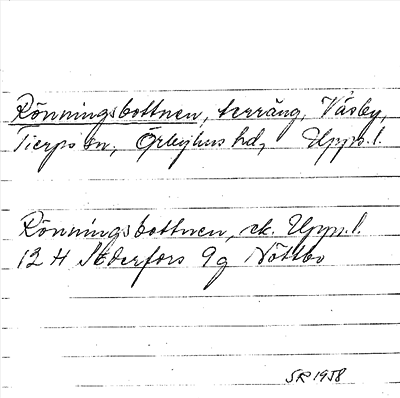 Rönningsbottnen, terräng, Våsby,
Tierps sn, Örbyhus hd, Upps. l.
Rönningsbottnen, ek. Upps. l.
12 H Söderfors 9g Nöttbo
SR 1958